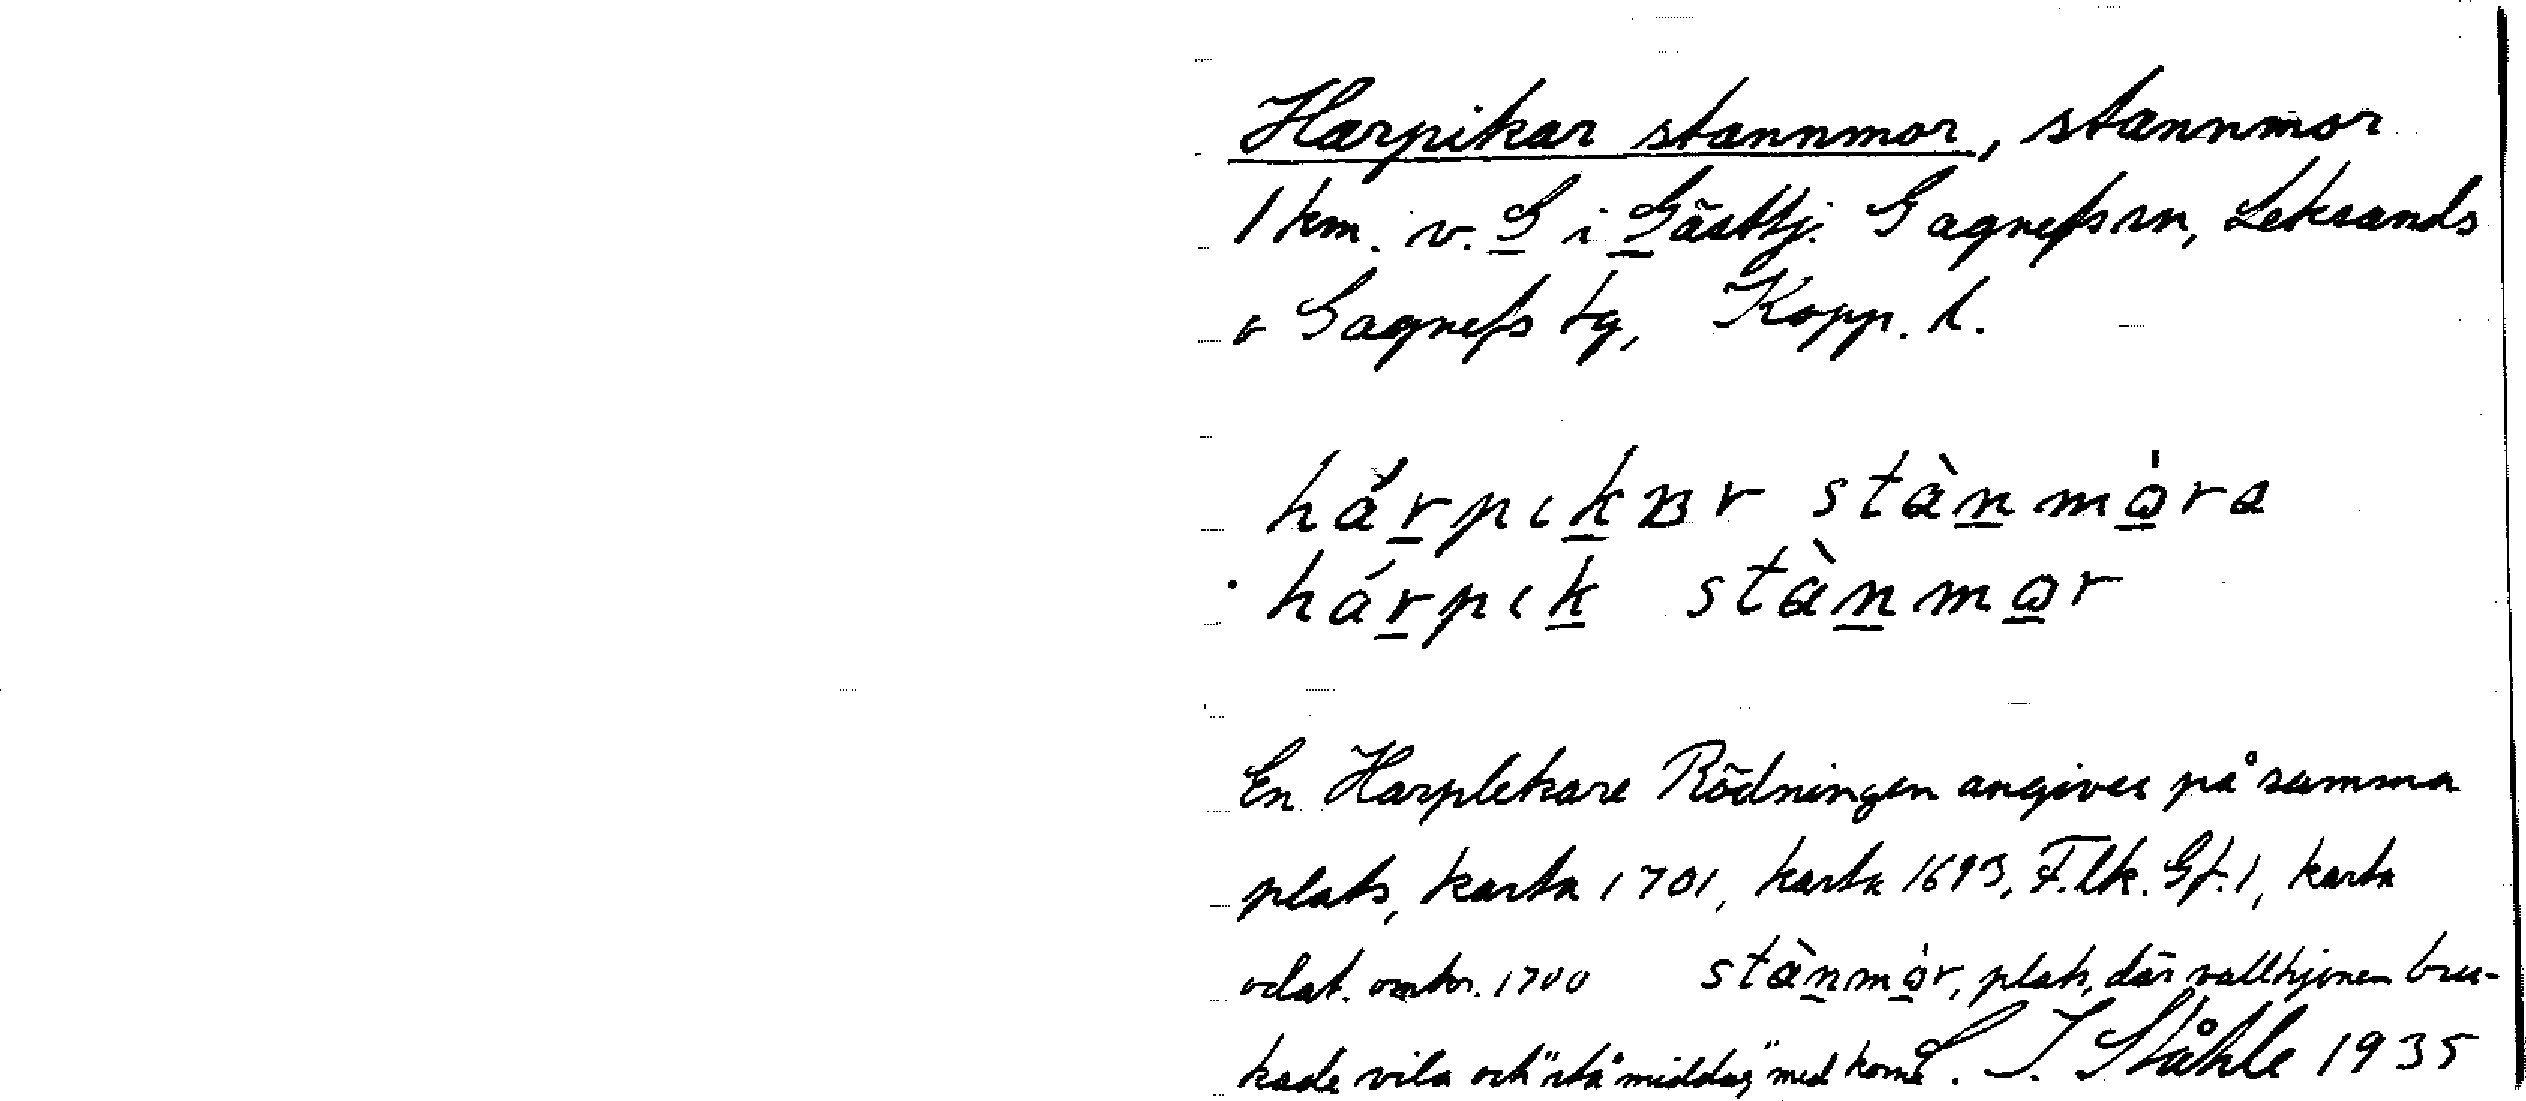 Harpikar stannmor, stannmor
1 km. v. G i Gästtj. Gagnefs sn, Leksands
o Gagnefs tg, Kopp. l.
hárpıkɐr stànmòra
hárpık stànmɷr
En Harplekare Rödningen angives på samma
plats, karta 1701, karta 1693, F.lk. Gf. 1, karta
odat. omkr. 1700 stànmòr, plats, där vallhjonen bru-
kade vila och "stå middag" med korna. C. I. Ståhle 1935